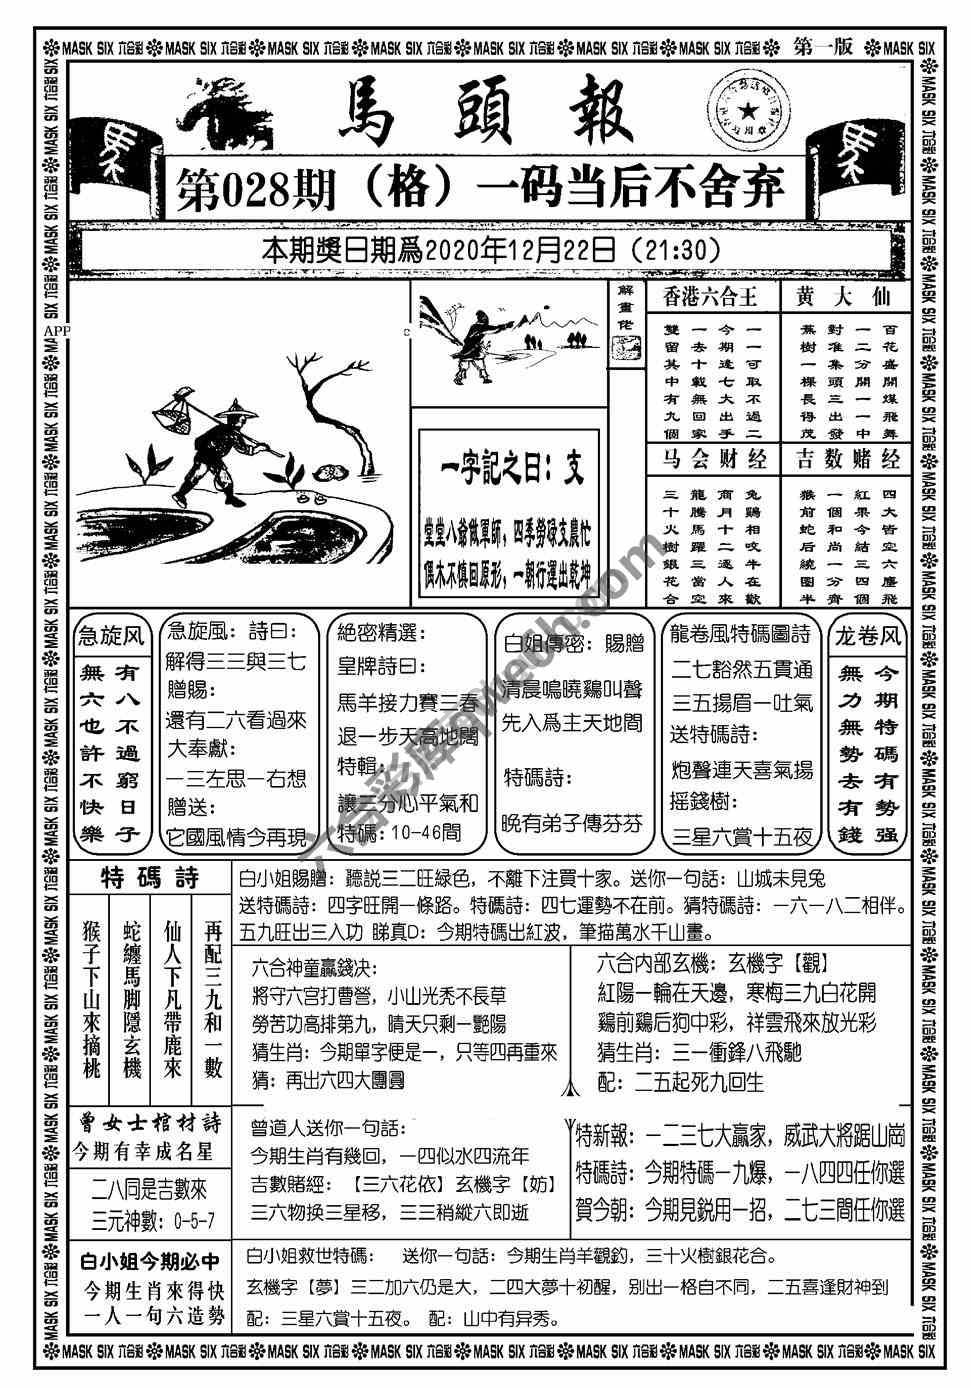 MASK SIX 六合彩 MASK SIX 六合彩 MASK SIX 六合彩 MASK SIX 六合彩 MASK SIX 六合彩 MASK SIX 六合彩 MASK SIX 六合彩 第一版 MASK SIX
馬頭報
第028期（格）一码当后不舍弃
本期獎日期爲2020年12月22日（21:30）
APP
解畫佬
一字記之曰：支
堂堂八爺做軍師，四季勞碌支農忙
偶木不慎回原形，一朝行運出乾坤
香港六合王
一一可取不過二
今期逢七大出手
一去十載無回家
雙留其中有九個
黄大仙
百花盛開煤飛舞
一二分開一一中
對准集頭三出發
蕉樹一棵長得茂
马会财经
兔鷄相咬牛在歡
商月十二逐人來
龍騰馬躍三當空
三十火樹銀花合
吉数赌经
四大皆空六塵飛
紅果今結三四個
一個和尚一分齊
猴前蛇后繞图半
急旋风
有八不過窮日子
無六也許不快樂
急旋風：詩曰：
解得三三與三七
贈賜：
還有二六看過來
大奉獻：
一三左思一右想
贈送：
它國風情今再現
絶密精選：
皇牌詩曰：
馬羊接力賽三春
退一步天高地闊
特輯：
讓三分心平氣和
特碼：10-46間
白姐傳密：賜贈
清晨鳴曉鷄叫聲
先入爲主天地間
特碼詩：
晚有弟子傳芬芬
龍卷風特碼圖詩
二七豁然五貫通
三五揚眉一吐氣
送特碼詩：
炮聲連天喜氣揚
摇錢樹：
三星六賞十五夜
龙卷风
今期特碼有勢强
無力無勢去有錢
特碼詩
再配三九和一數
仙人下凡帶鹿來
蛇纏馬脚隱玄機
猴子下山來摘桃
白小姐賜贈：聽説三二旺緑色，不離下注買十家。送你一句話：山城未見兔
送特碼詩：四字旺開一條路。特碼詩：四七運勢不在前。猜特碼詩：一六一八二相伴。
五九旺出三入功 睇真D：今期特碼出紅波，筆描萬水千山畫。
六合神童贏錢决：
將守六宫打曹營，小山光秃不長草
勞苦功高排第九，晴天只剩一艷陽
猜生肖：今期單字便是一，只等四再重來
猜：再出六四大團圓
六合内部玄機：玄機字【觀】
紅陽一輪在天邊，寒梅三九白花開
鷄前鷄后狗中彩，祥雲飛來放光彩
猜生肖：三一衝鋒八飛馳
配：二五起死九回生
曾女士棺材詩
今期有幸成名星
二八同是吉數來
三元神數：0-5-7
曾道人送你一句話：
今期生肖有幾回，一四似水四流年
吉數賭經：【三六花依】玄機字【妨】
三六物换三星移，三三稍縱六即逝
特新報：一二三七大贏家，威武大將踞山崗
特碼詩：今期特碼一九爆，一八四四任你選
賀今朝：今期見鋭用一招，二七三間任你選
白小姐今期必中
今期生肖來得快
一人一句六造勢
白小姐救世特碼：　送你一句話：今期生肖羊觀釣，三十火樹銀花合。
玄機字【夢】三二加六仍是大，二四大夢十初醒，别出一格自不同，二五喜逢財神到
配：三星六賞十五夜。 配：山中有异秀。
MASK SIX 六合彩 MASK SIX 六合彩 MASK SIX 六合彩 MASK SIX 六合彩 MASK SIX 六合彩 MASK SIX 六合彩 MASK SIX 六合彩 MASK SIX 六合彩 MASK SIX